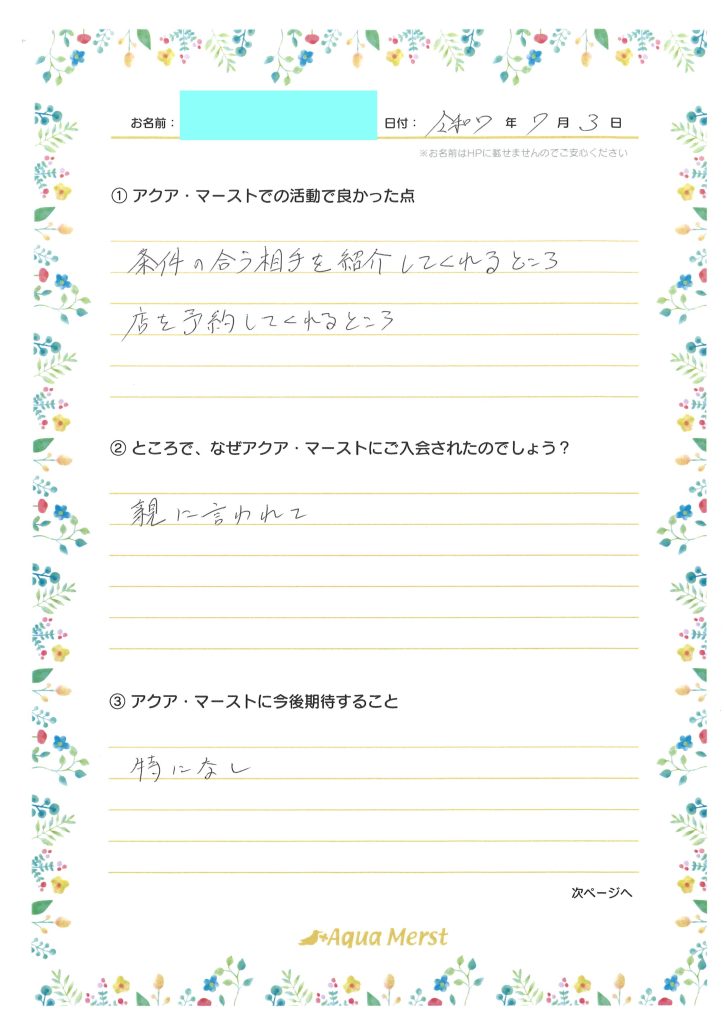 お名前： 日付： 令和7 年 7 月 3 日
※お名前はHPに載せませんのでご安心ください
① アクア・マーストでの活動で良かった点
条件の合う相手を紹介してくれるところ
店を予約してくれるところ
② ところで、なぜアクア・マーストにご入会されたのでしょう？
親に言われて
③ アクア・マーストに今後期待すること
特になし
次ページへ
Aqua Merst